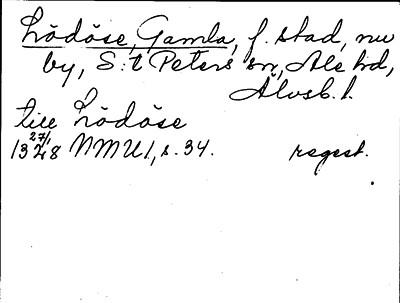 Lödöse, Gamla, f. stad, nu
by, S:t Peters sn, Ale hd,
Älvsb. l.
till Lödöse
13 27/1 28 NMU 1, s. 34. regest.